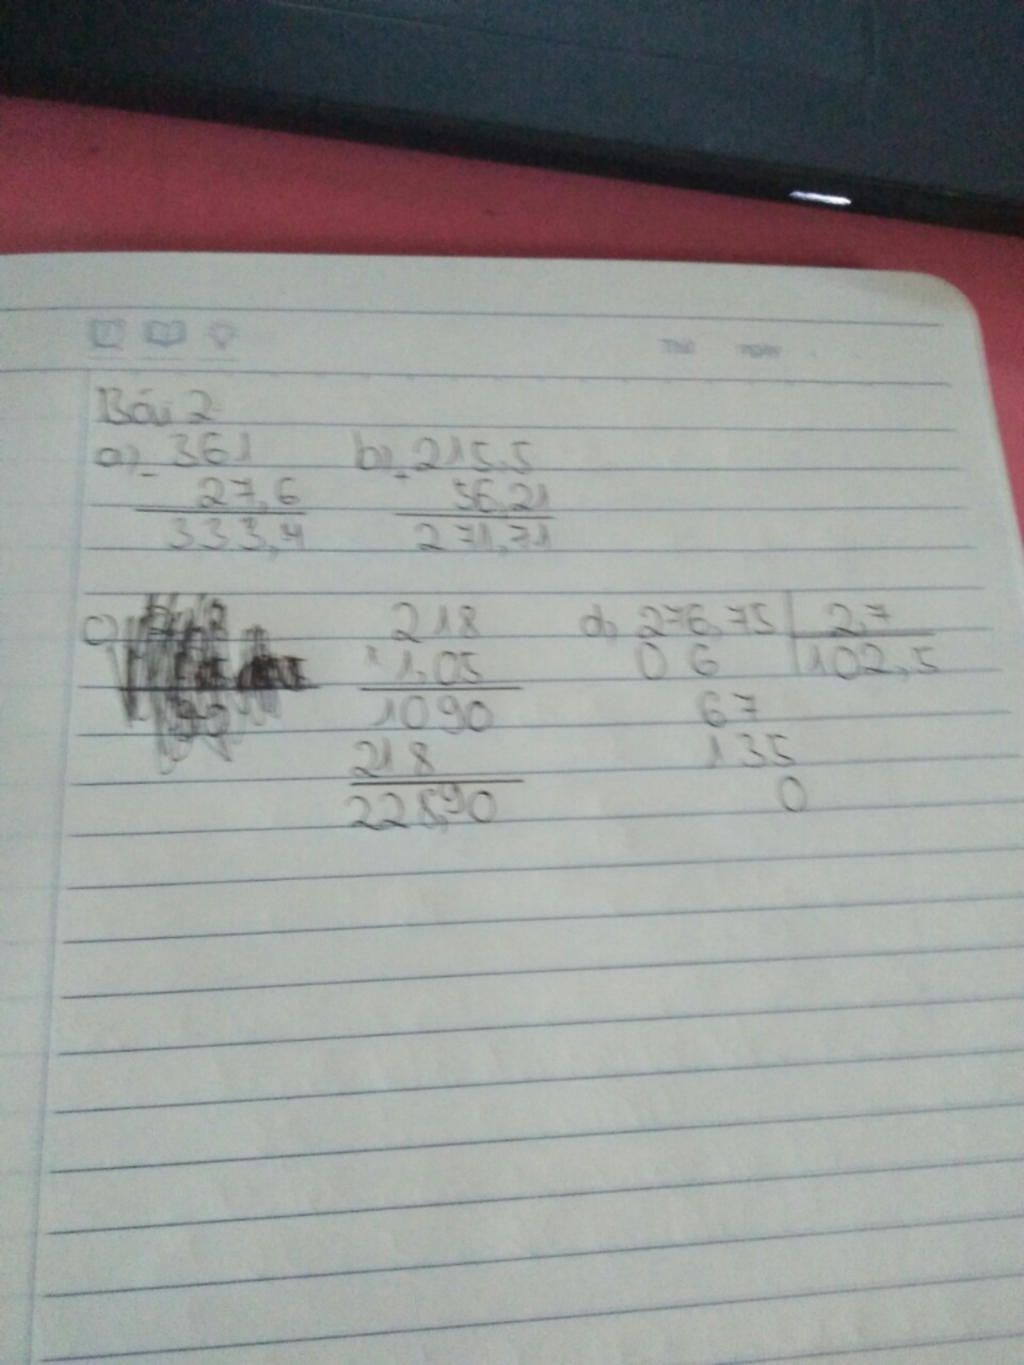 Bài 2
a) - 361 b) - 215,5
27,6 56,21
333,4 271,71
c) 218 d, 276,75 2,7
x 1,05 0 6 102,5
1090 67
218 135
228,90 0